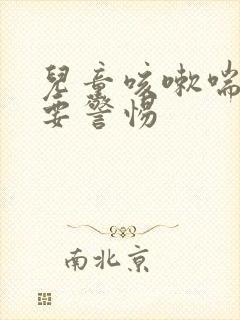 兒童咳嗽喘
要警惕
南北京